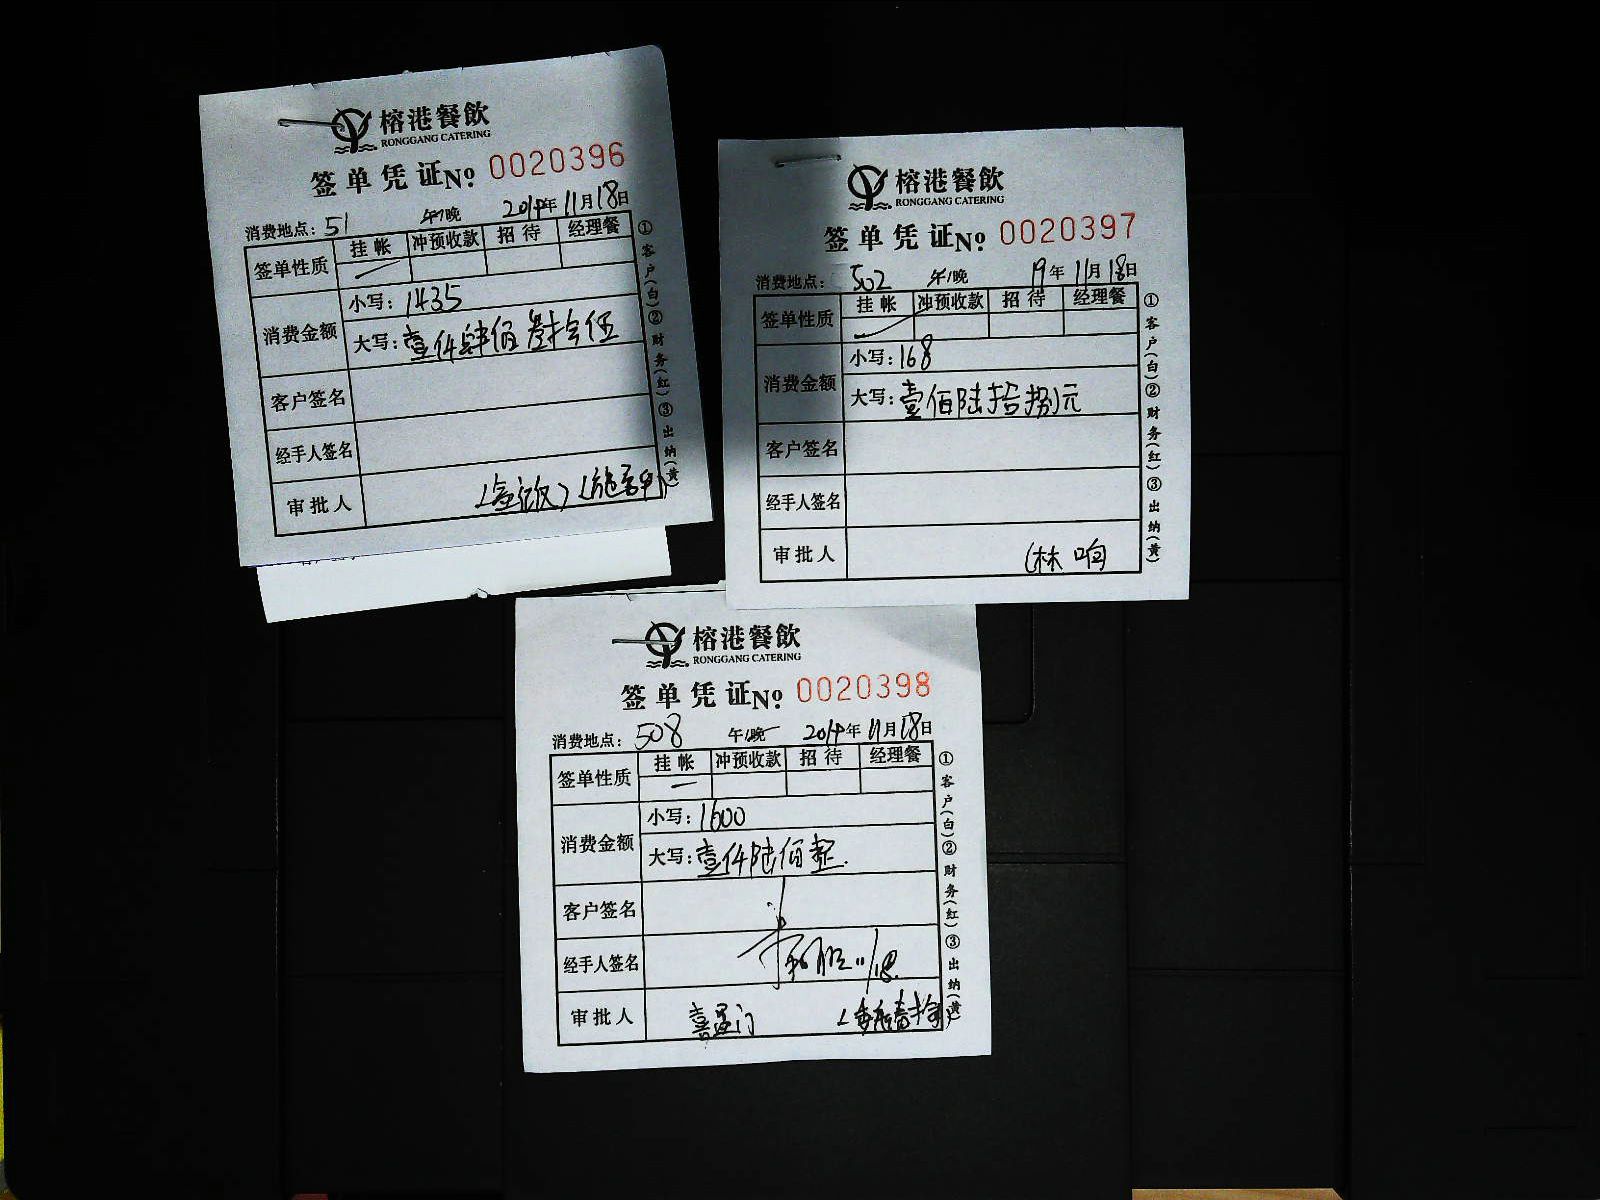 榕港餐飲
RONGGANG CATERING
签单凭证№ 0020396
消费地点：51 午/晚 2019年11月18日
签单性质 挂帐 冲预收款 招待 经理餐
消费金额 小写：1435
大写：壹仟肆佰叁拾伍
客户签名
经手人签名
审批人
①客户(白)②财务(红)③出纳(黄)
榕港餐飲
RONGGANG CATERING
签单凭证№ 0020397
消费地点：502 午/晚 19年11月18日
签单性质 挂帐 冲预收款 招待 经理餐
消费金额 小写：168
大写：壹佰陆拾捌元
客户签名
经手人签名
审批人 (林响
①客户(白)②财务(红)③出纳(黄)
榕港餐飲
RONGGANG CATERING
签单凭证№ 0020398
消费地点：508 午/晚 2019年11月18日
签单性质 挂帐 冲预收款 招待 经理餐
消费金额 小写：1600
大写：壹仟陆佰整.
客户签名
经手人签名 11/18.
审批人
①客户(白)②财务(红)③出纳(黄)